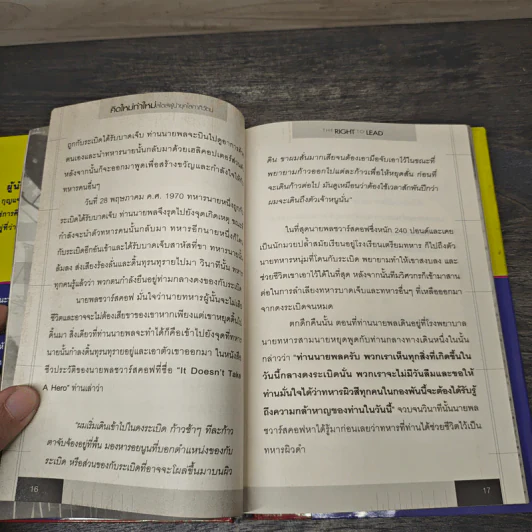 คิดใหม่ทำใหม่
ถูกกับระเบิดได้รับบาดเจ็บ ท่านนายพลจะบินไปดูอาการด้วย
ตนเองและนำทหารนายนั้นกลับมาด้วยเฮลิคอปเตอร์
หลังจากนั้นก็จะออกมาพูดเพื่อสร้างขวัญและกำลังใจให้
ทหารคนอื่นๆ
วันที่ 28 พฤษภาคม ค.ศ. 1970 ทหารนายหนึ่งถูก
ระเบิดได้รับบาดเจ็บ ท่านนายพลจึงรุดไปยังจุดเกิดเหตุ
กำลังจะนำตัวทหารคนนั้นกลับมา ทหารอีกนายหนึ่งก็
กับระเบิดอีกอันเข้าและได้รับบาดเจ็บสาหัสที่ขา ทหารนายนั้น
ล้มลง ส่งเสียงร้องลั่นและดิ้นทุรนทุรายไปมา วินาทีนั้น
ทุกคนรู้แล้วว่า พวกตนกำลังยืนอยู่ท่ามกลางดงของกับระเบิด
นายพลชวาร์สคอฟ มั่นใจว่านายทหารผู้นั้นจะไม่เสีย
ชีวิตและอาจจะไม่ต้องเสียขาของเขาหากเพียงแต่เขาหยุดดิ้นไป
ดิ้นมา สิ่งเดียวที่ท่านนายพลจะทำได้ก็คือเข้าไปยังจุดที่ทหาร
นายนั้นกำลังดิ้นทุรนทุรายอยู่และเอาตัวเขาออกมา ในหนังสือ
ชีวประวัติของนายพลชวาร์สคอฟที่ชื่อ "It Doesn't Take
A Hero" ท่านเล่าว่า
"ผมเริ่มเดินเข้าไปในดงระเบิด ก้าวช้าๆ ทีละก้าว
ตาจับจ้องอยู่ที่พื้น มองหารอยนูนที่บอกตำแหน่งของกับ
ระเบิด หรือส่วนของกับระเบิดที่อาจจะโผล่ขึ้นมาบนผิว
16
THE RIGHT TO LEAD
ดิน ขาผมสั่นมากเสียจนต้องเอามือจับเอาไว้ในขณะที่
พยายามก้าวออกไปแต่ละก้าวเพื่อให้หยุดสั่น ก่อนที่
จะเดินก้าวต่อไป มันดูเหมือนว่าต้องใช้เวลาสักพันปีกว่า
ผมจะเดินถึงตัวเจ้าหนูนั่น"
ในที่สุดนายพลชวาร์สคอฟซึ่งหนัก 240 ปอนด์และเคย
เป็นนักมวยปล้ำสมัยเรียนอยู่โรงเรียนเตรียมทหาร ก็ไปถึงตัว
นายทหารหนุ่มที่โดนกับระเบิด พยายามทำให้เขาสงบลง และ
ช่วยชีวิตเขาเอาไว้ได้ในที่สุด หลังจากนั้นทีมวิศวกรก็เข้ามาสาน
ต่อในการลำเลียงทหารบาดเจ็บและทหารอื่นๆ ที่เหลือออกมา
จากดงระเบิดจนหมด
ตกดึกคืนนั้น ตอนที่ท่านนายพลเดินอยู่ที่โรงพยาบาล
นายทหารสามนายหยุดพูดกับท่านกลางทางเดินหนึ่งในนั้น
กล่าวว่า "ท่านนายพลครับ พวกเราเห็นทุกสิ่งที่เกิดขึ้นใน
วันนี้กลางดงระเบิดนั่น พวกเราจะไม่มีวันลืมและขอให้
ท่านมั่นใจได้ว่าทหารผิวสีทุกคนในกองพันนี้จะต้องได้รับรู้
ถึงความกล้าหาญของท่านในวันนี้" จวบจนวินาทีนั้นนายพล
ชวาร์สคอฟหาได้รู้มาก่อนเลยว่าทหารที่ท่านได้ช่วยชีวิตไว้เป็น
ทหารผิวดำ
17